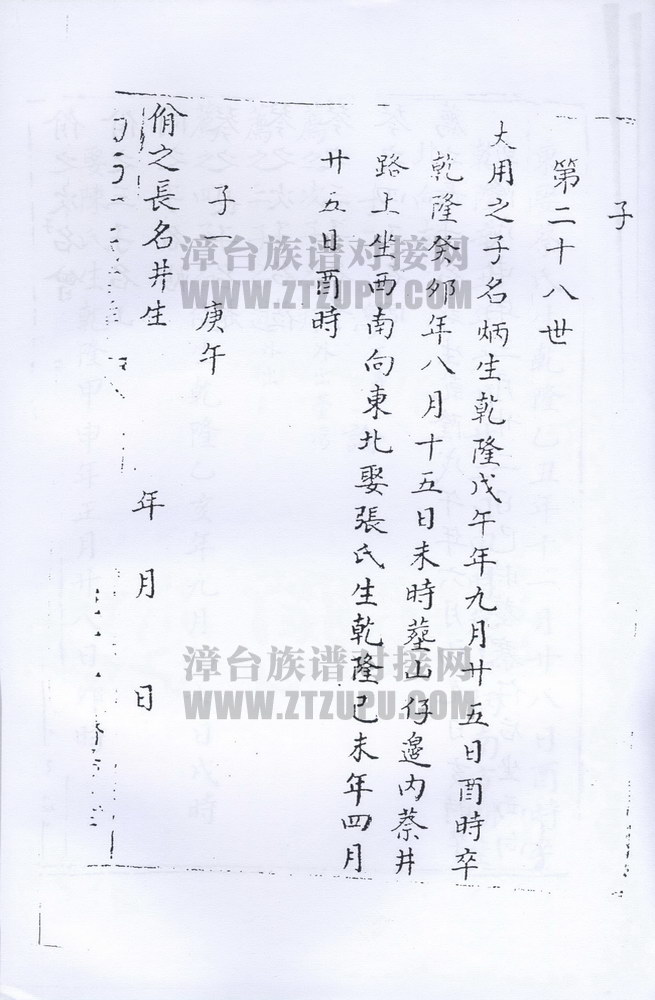 子
第二十八世
大用之子名炳生乾隆戊午年九月廿五日酉時卒
乾隆癸卯年八月十五日未時塟山仔邊内蔡井
路上坐西南向東北娶張氏生乾隆己未年四月
廿五日酉時
子一 庚午
佾之長名井生 年 月 日
漳台族谱对接网
WWW.ZTZUPU.COM
漳台族谱对接网
WWW.ZTZUPU.COM